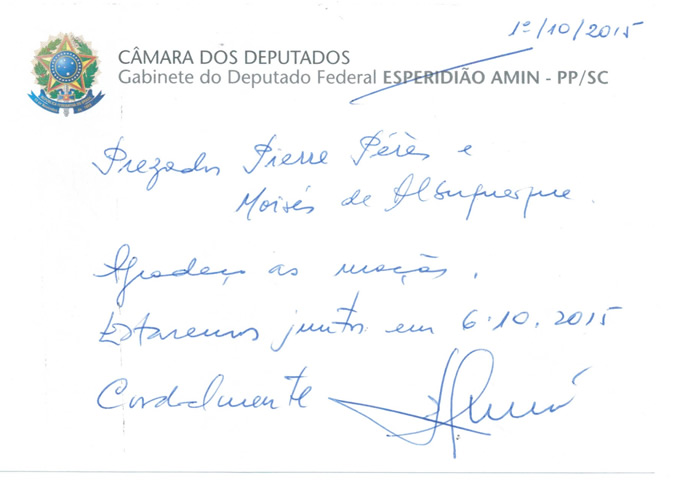 1º/10/2015
CÂMARA DOS DEPUTADOS
Gabinete do Deputado Federal ESPERIDIÃO AMIN - PP/SC
Prezados Pierre Pérès e
Moisés de Albuquerque.
Agradeço as moções.
Estaremos juntos em 6.10.2015
Cordialmente
Amin